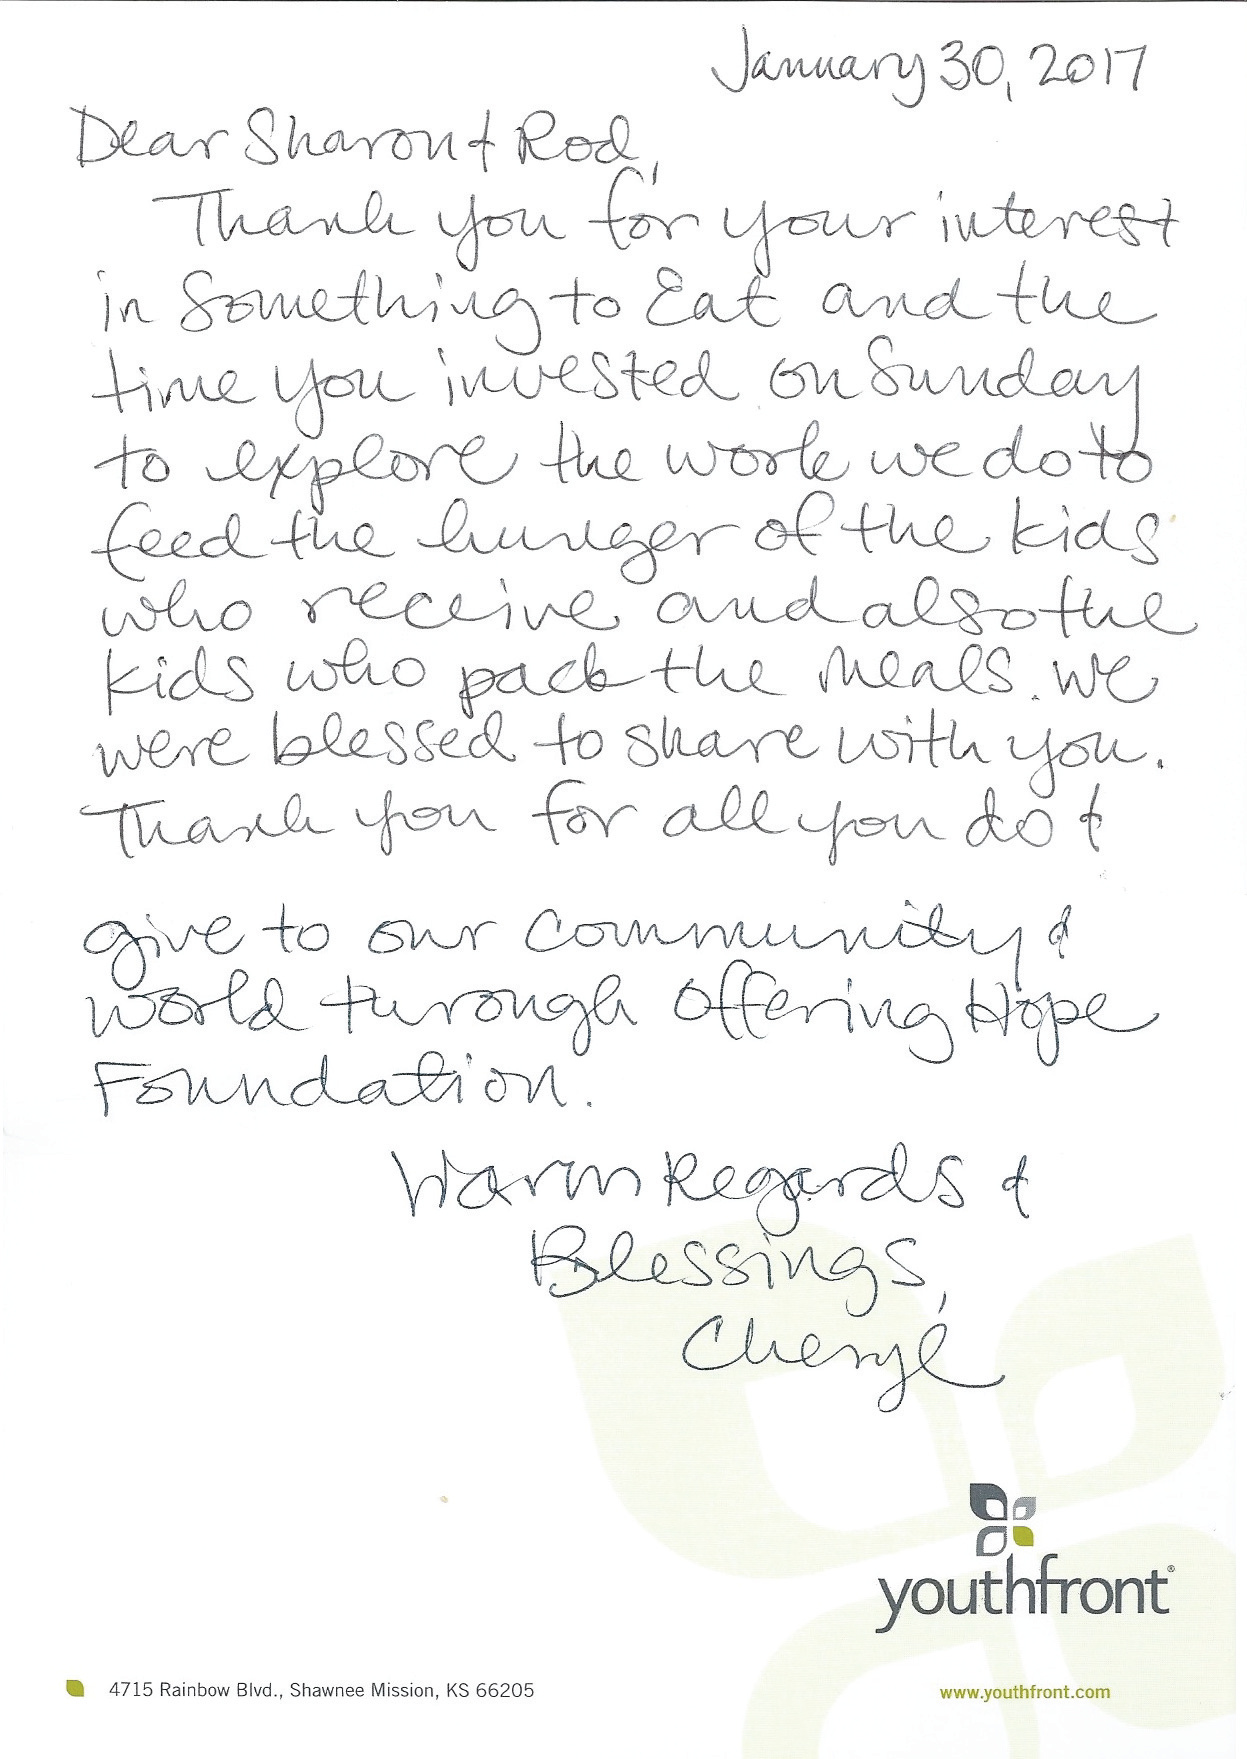 January 30, 2017
Dear Sharon & Rod,
Thank you for your interest
in Something to Eat and the
time you invested on Sunday
to explore the work we do to
feed the hunger of the kids
who receive and also the
kids who pack the meals. We
were blessed to share with you.
Thank you for all you do &
give to our community &
world through Offering Hope
Foundation.
Warm Regards &
Blessings,
Cheryl
youthfront®
4715 Rainbow Blvd., Shawnee Mission, KS 66205
www.youthfront.com